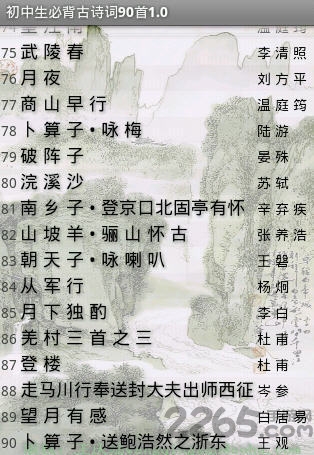 初中生必背古诗词90首1.0
75 武陵春 李清照
76 月夜 刘方平
77 商山早行 温庭筠
78 卜算子•咏梅 陆游
79 破阵子 晏殊
80 浣溪沙 苏轼
81 南乡子•登京口北固亭有怀 辛弃疾
82 山坡羊•骊山怀古 张养浩
83 朝天子•咏喇叭 王磐
84 从军行 杨炯
85 月下独酌 李白
86 羌村三首之三 杜甫
87 登楼 杜甫
88 走马川行奉送封大夫出师西征 岑参
89 望月有感 白居易
90 卜算子•送鲍浩然之浙东 王观
2265.com